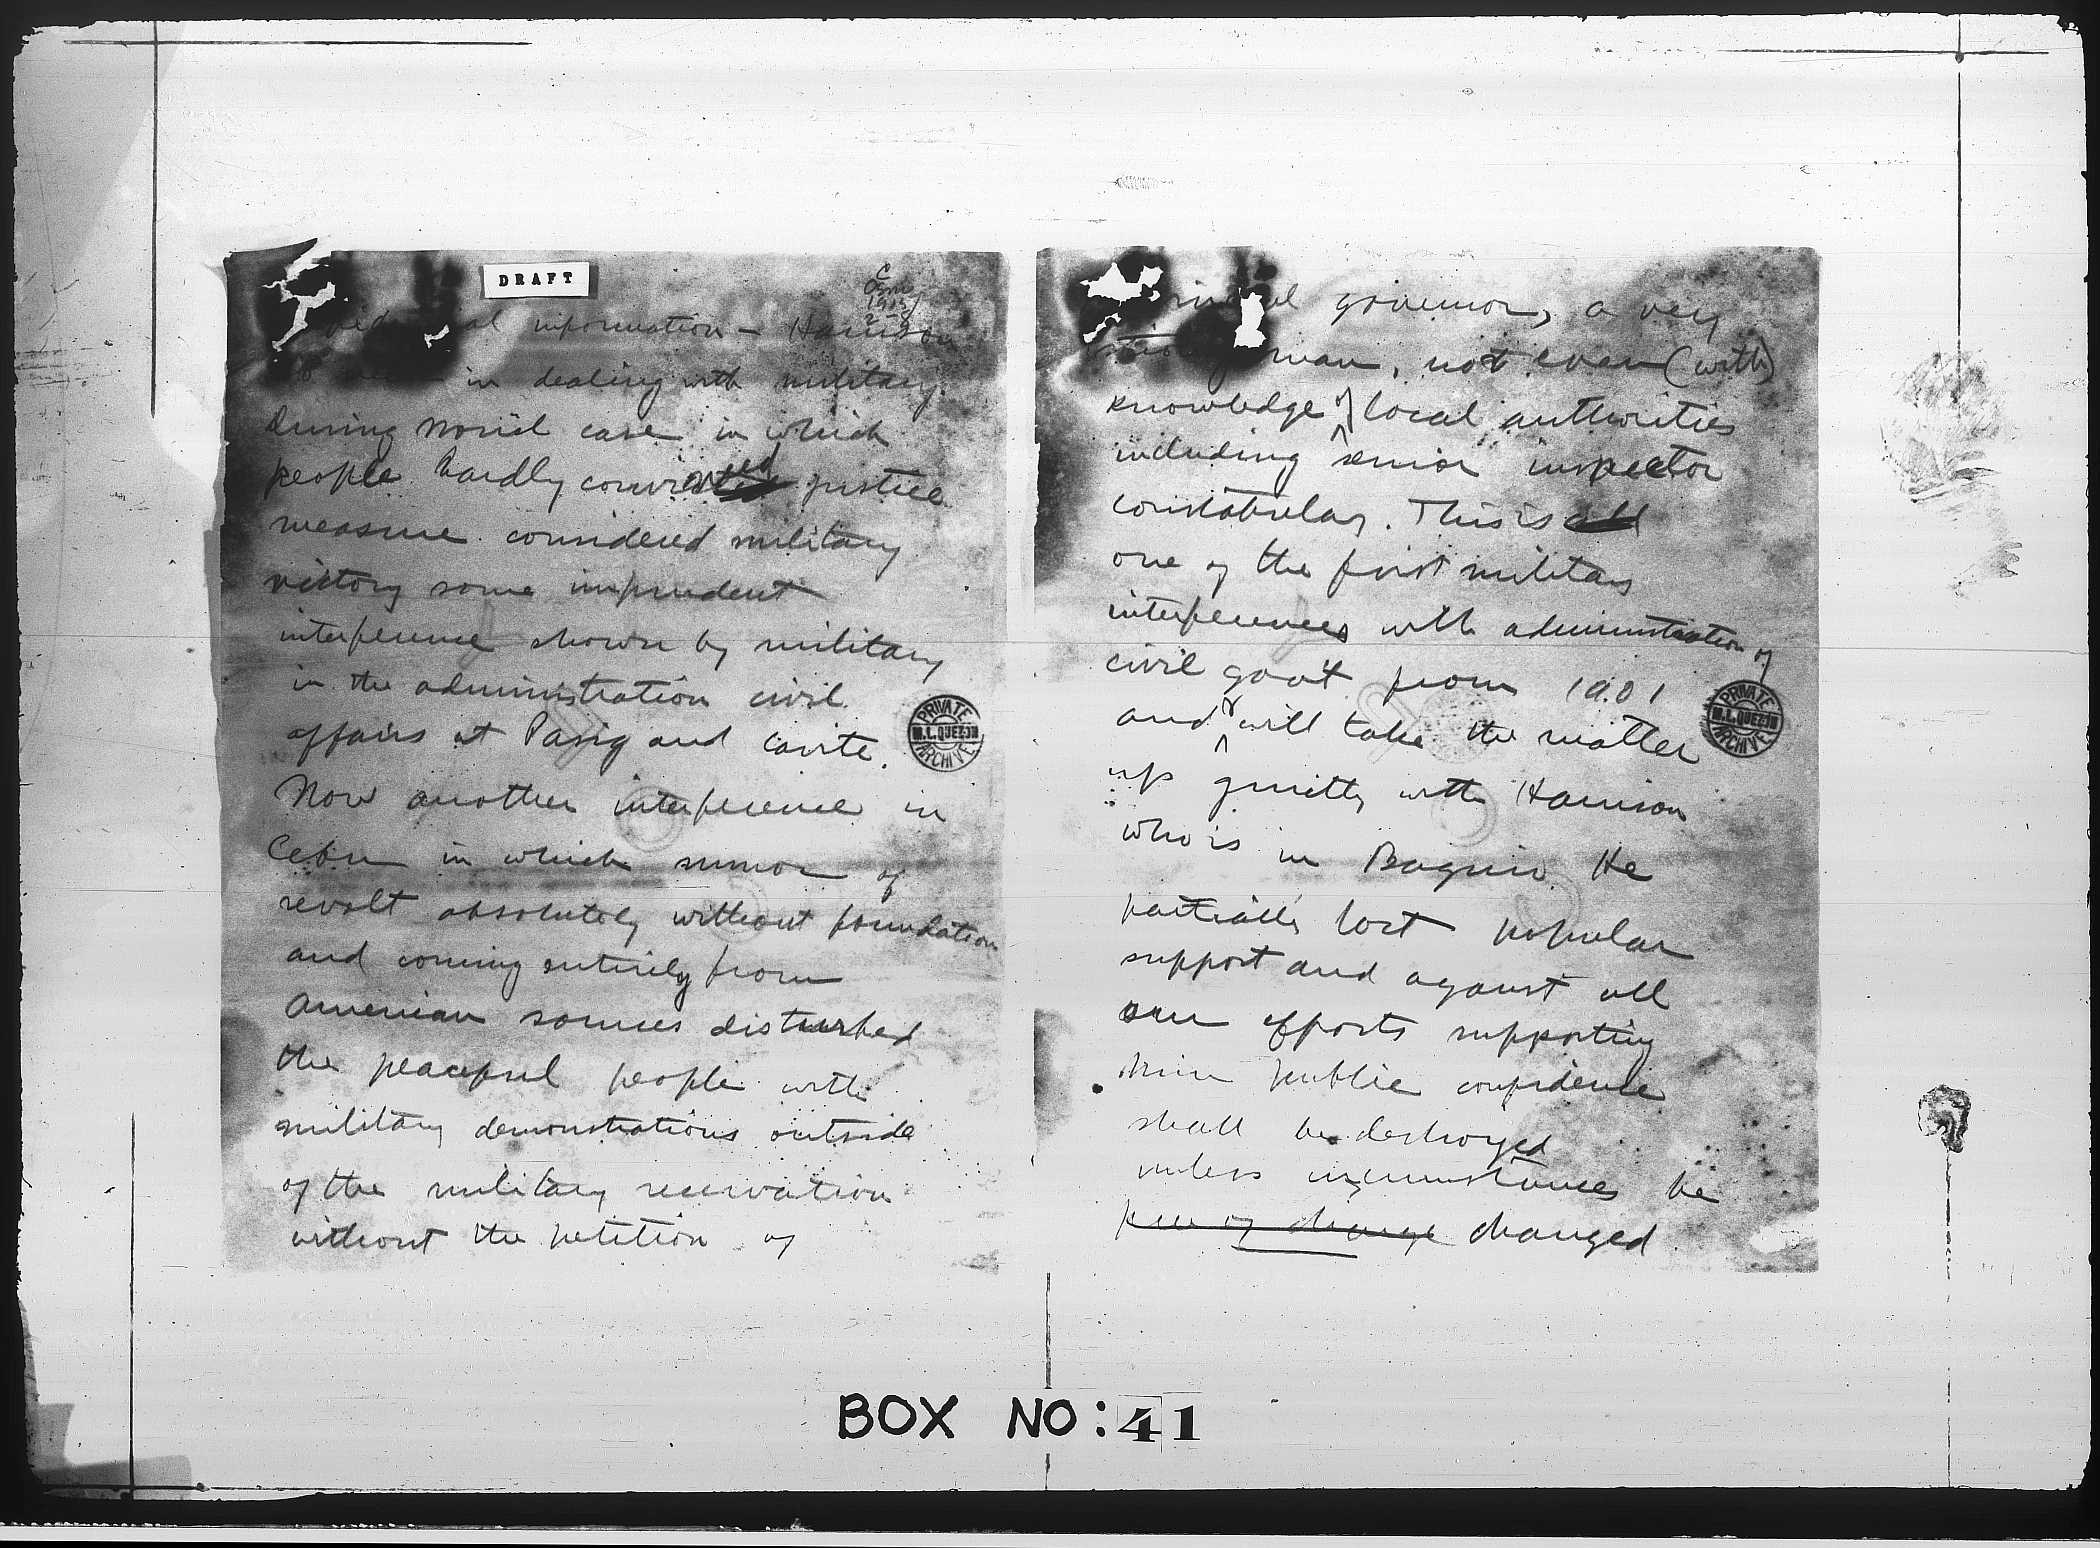 DRAFT
C
1915
information — Harrison
in dealing with military
During Noriel case in which
people hardly convicted justice
measure considered military
victory some imprudent
interference shown by military
in the administration civil
affairs at Pasig and Cavite.
Now another interference in
Cebu in which rumor of
revolt absolutely without foundation
and coming entirely from
American sources disturbed
the peaceful people with
military demonstrations outside
of the military reservation
without the petition of
PRIVATE
M.L. QUEZON
ARCHIVE
governor, a very
man, not even (with)
knowledge of local authorities
including senior inspector
constabulary. This is
one of the first military
interferences with administration of
civil gov't from 1901
and will take the matter
up quietly with Harrison
who is in Baguio. He
partially lost popular
support and against all
our efforts supporting
him public confidence
shall be destroyed
unless circumstances be
changed
PRIVATE
M.L. QUEZON
ARCHIVE
BOX NO: 41